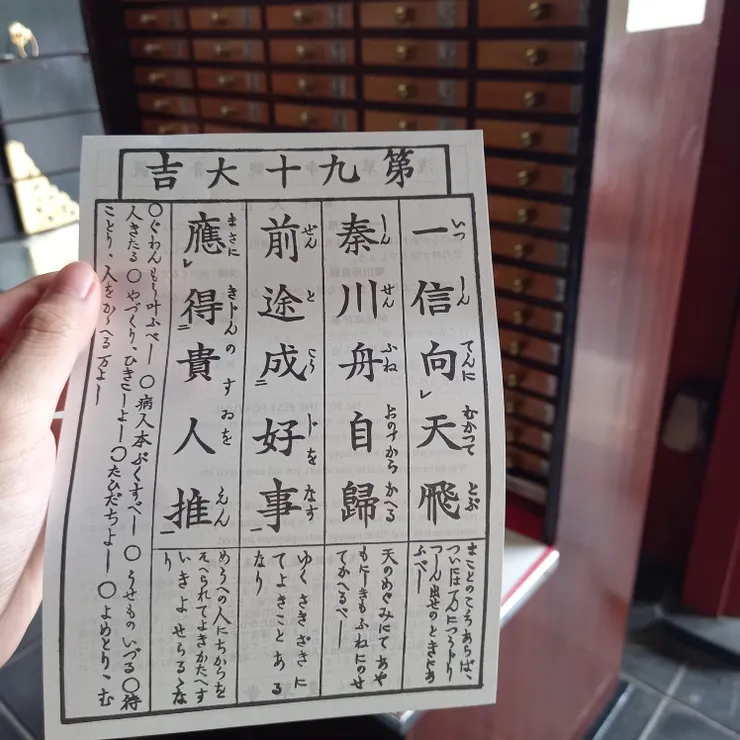 第九十大吉
一信向天飛
いつしんてんにむかつてとぶ
まことのこころあらば、
ついにはてんにつうじり
つしん出せのときにあ
ふべし
秦川舟自歸
しんせんふねおのづからかへる
天のめぐみにてあや
もにしきもふねにのせ
てかへるべし
前途成好事
ぜんとこうじをなす
ゆくさきざきに
てよきことある
なり
應得貴人推
まさにきじんのすゐをえん
めうへの人にちからを
そへられてよきかたへす
いきよせらるゝな
り
〇ぐわんもう叶ふべし 〇病人本ぷくすべし 〇うせものいづる 〇待
人きたる 〇やづくり、ひきこしよし 〇たびだちよし 〇よめとり、む
ことり、人をかゝへる万よし